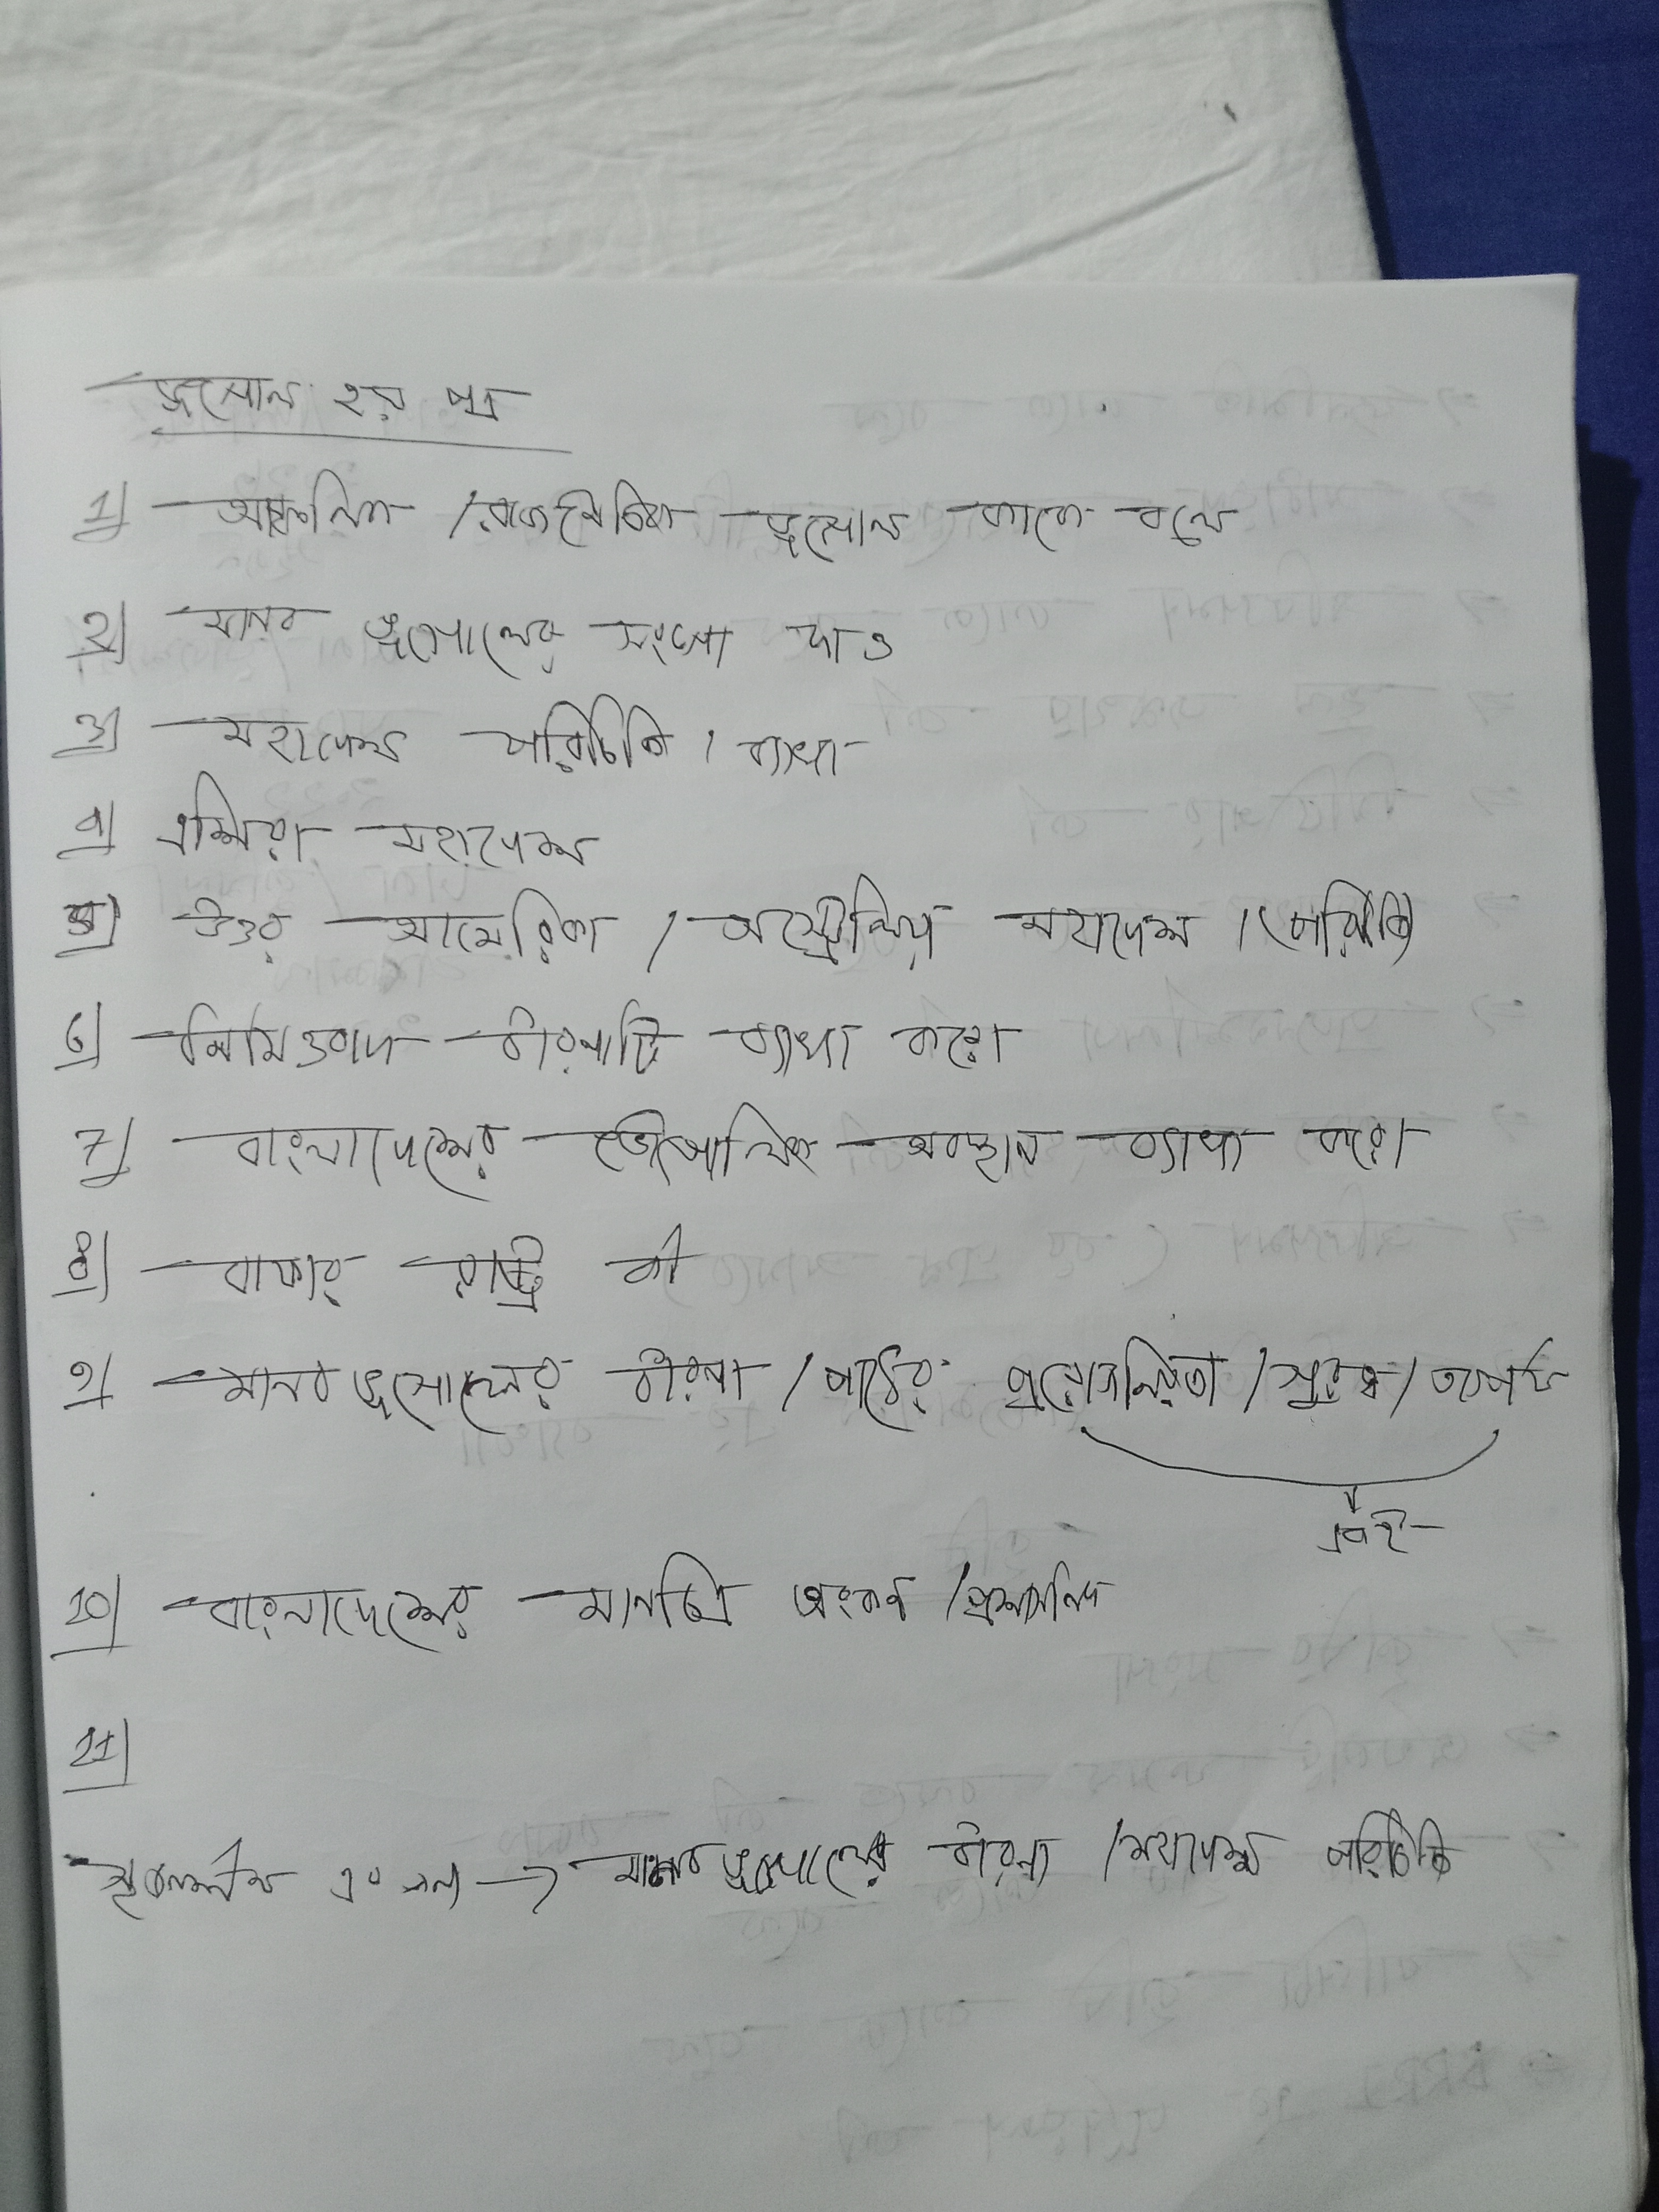 ভূগোল ২য় পত্র
1) আঞ্চলিক / রাজনৈতিক ভূগোল কাকে বলে
২) মানব ভূগোলের সংজ্ঞা দাও
৩) মহাদেশ পরিচিতি / ব্যাখ্যা
৪) এশিয়া মহাদেশ
৫) উত্তর আমেরিকা / অস্ট্রেলিয়া মহাদেশ / (পরিচিতি)
৬) নিমিত্তবাদ ধারণাটি ব্যাখ্যা করো
7) বাংলাদেশের ভৌগোলিক অবস্থান ব্যাখ্যা করো
৪) বাফার রাষ্ট্র কী
৯) মানব ভূগোলের ধারণা / পাঠের প্রয়োজনিয়তা / গুরুত্ব / তাৎপর্য
একই
10) বাংলাদেশের মানচিত্র অংকন / প্রশাসনিক
11)
সৃজনশীল এর জন্য → মানব ভূগোলের ধারণা / মহাদেশ পরিচিতি